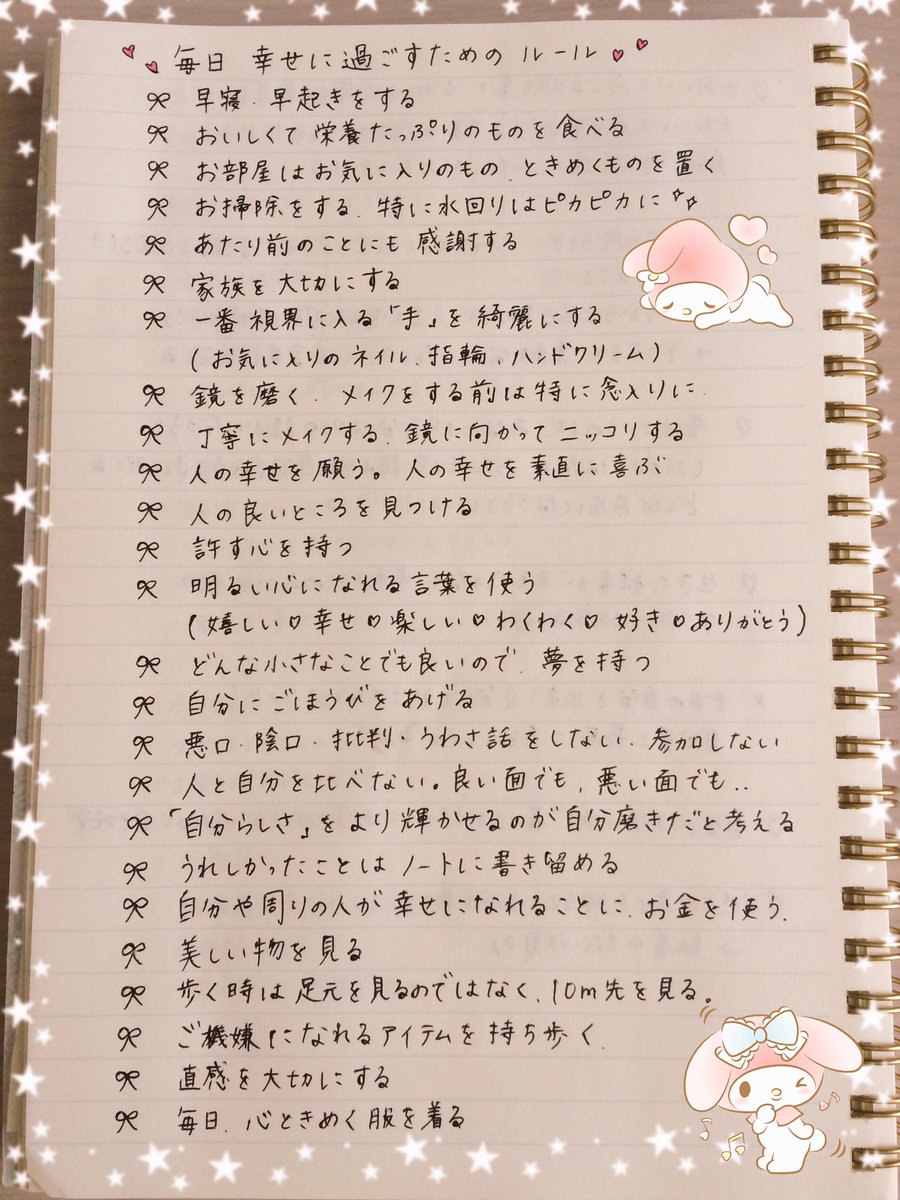 毎日 幸せに過ごすための ルール
早寝・早起きをする
おいしくて 栄養たっぷりのものを 食べる
お部屋はお気に入りのもの、ときめくものを置く
お掃除をする、特に水回りはピカピカに
あたり前のことにも 感謝する
家族を大切にする
一番 視界に入る「手」を 綺麗にする
(お気に入りの ネイル、指輪、ハンドクリーム)
鏡を磨く、メイクをする前は特に念入りに、
丁寧にメイクする、鏡に向かって ニッコリする
人の幸せを 願う。人の幸せを素直に喜ぶ
人の良いところを見つける
許す心を持つ
明るい心になれる言葉を使う
(嬉しい♡幸せ♡楽しい♡わくわく♡ 好き♡ありがとう)
どんな小さなことでも良いので、夢を持つ
自分に ごほうびを あげる
悪口・陰口・批判・うわさ話をしない、参加しない
人と自分を比べない。良い面でも、悪い面でも..
「自分らしさ」をより輝かせるのが自分磨きだと考える
うれしかったことは ノートに書き留める
自分や周りの人が 幸せになれることに、お金を使う、
美しい物を見る
歩く時は足元を見るのではなく、10m先を見る。
ご機嫌になれるアイテムを持ち歩く、
直感を大切にする
毎日、心ときめく服を着る